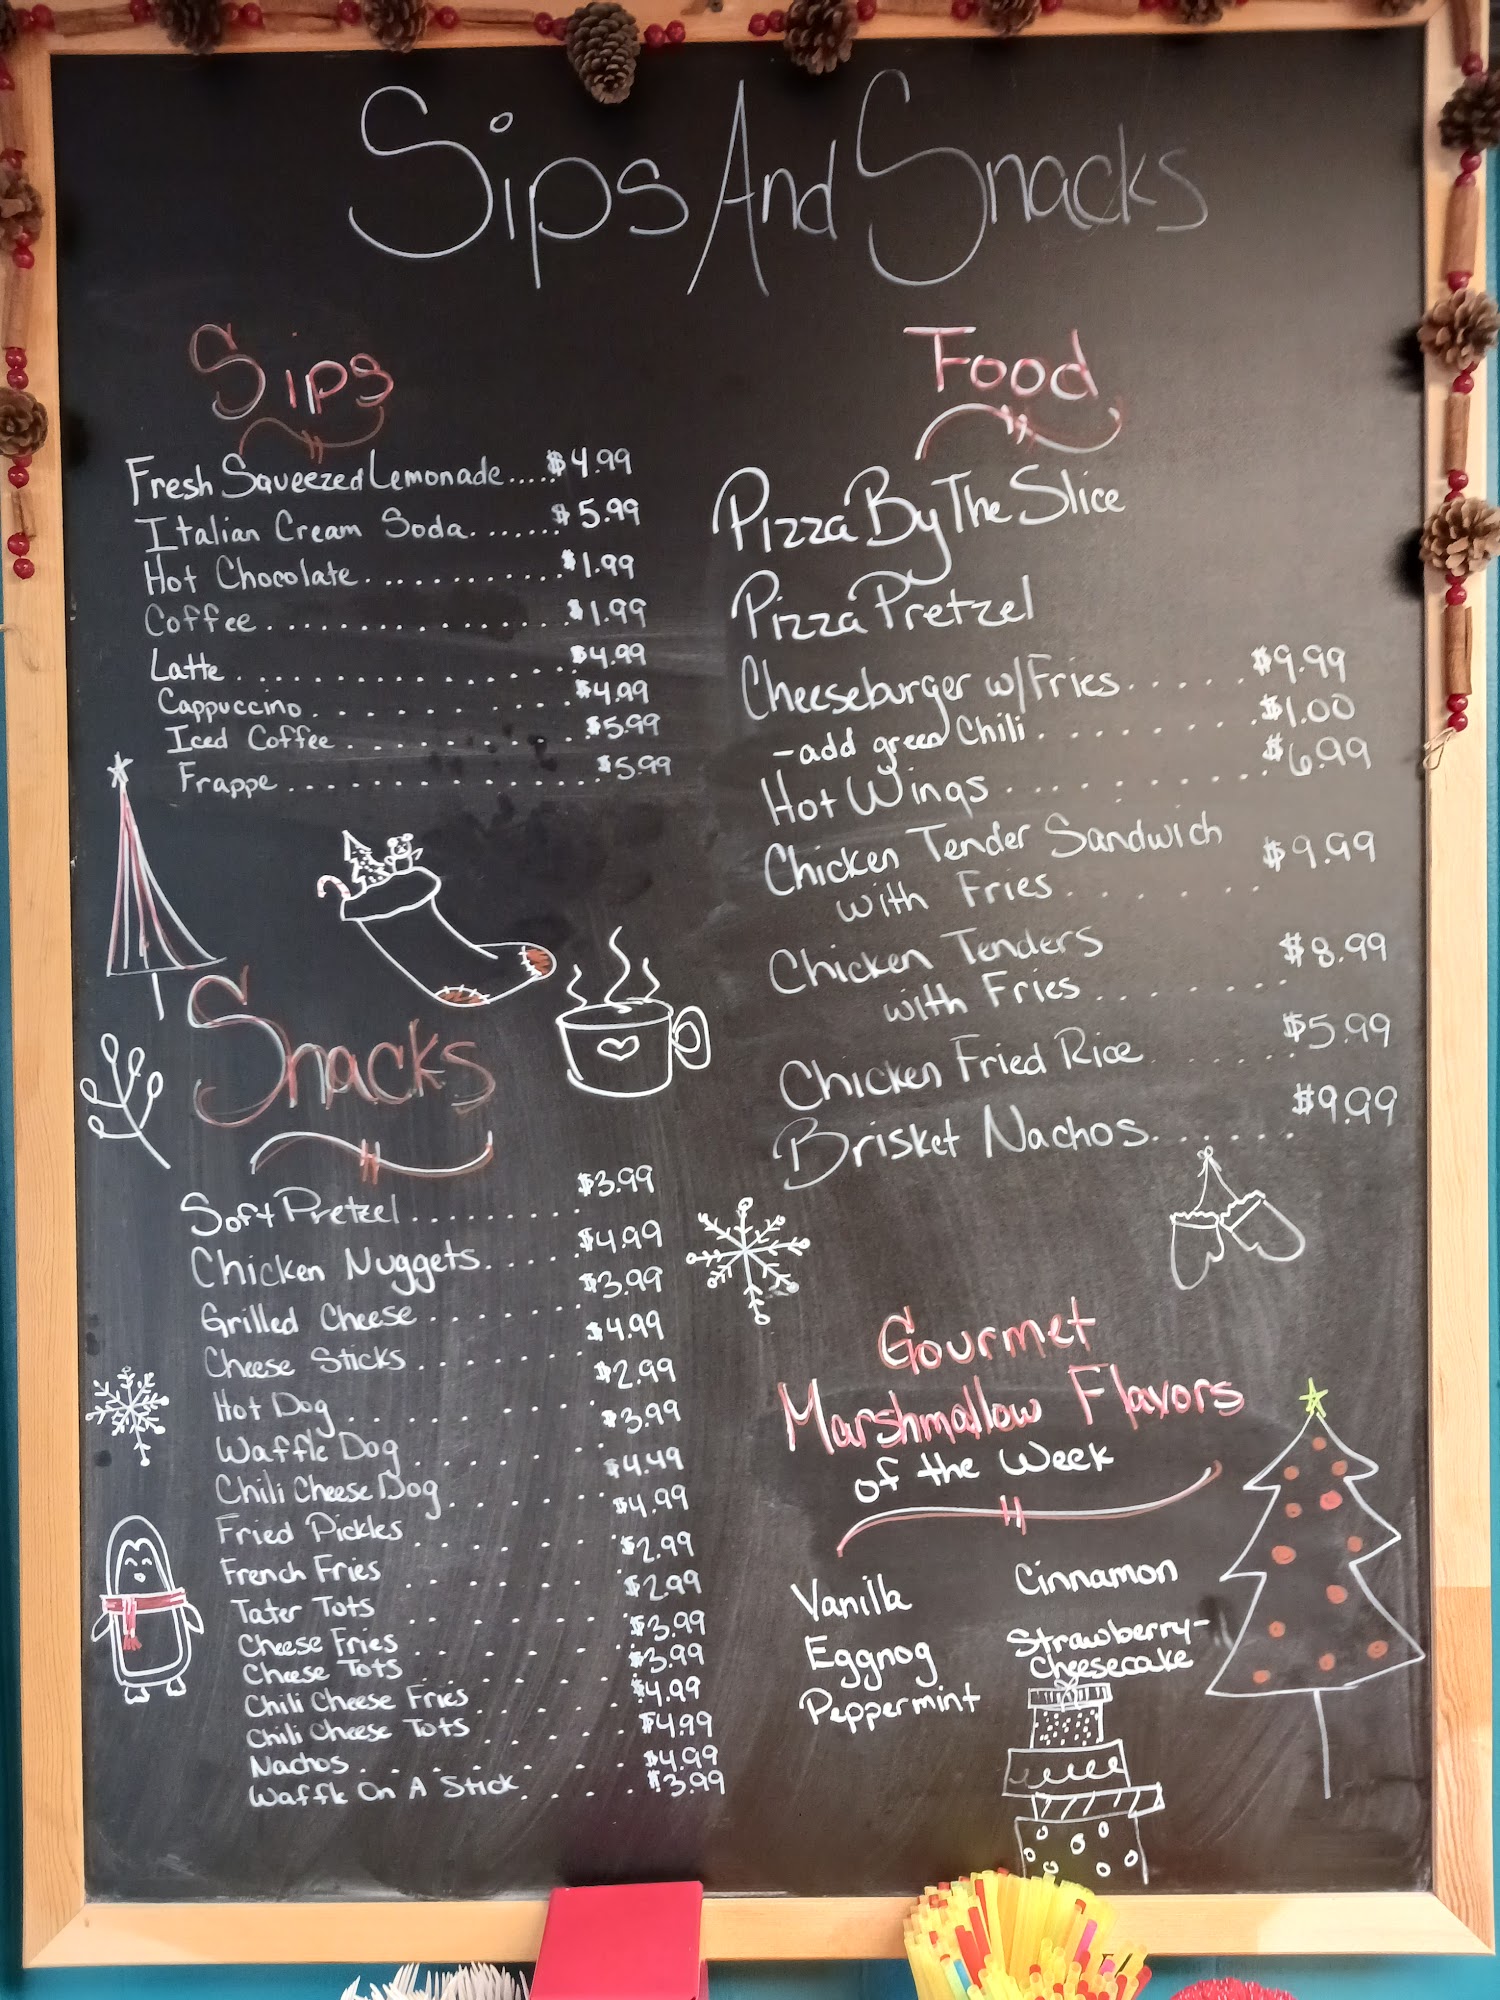 Sips And Snacks
Sips
Fresh Squeezed Lemonade.....$4.99
Italian Cream Soda.......$5.99
Hot Chocolate............$1.99
Coffee................$1.99
Latte................$4.99
Cappuccino..........$4.99
Iced Coffee..........$5.99
Frappe..............$5.99
Snacks
Soft Pretzel.........$3.99
Chicken Nuggets.....$4.99
Grilled Cheese.......$3.99
Cheese Sticks.......$4.99
Hot Dog..........$2.99
Waffle Dog.......$3.99
Chili Cheese Dog......$4.49
Fried Pickles......$4.99
French Fries.......$2.99
Tater Tots.......$2.99
Cheese Fries.......$3.99
Cheese Tots.......$3.99
Chili Cheese Fries.....$4.99
Chili Cheese Tots.....$4.99
Nachos.........$4.99
Waffle On A Stick....$3.99
Food
Pizza By The Slice
Pizza Pretzel
Cheeseburger w/Fries......$9.99
-add green Chili........$1.00
Hot Wings.........$6.99
Chicken Tender Sandwich
with Fries.......$9.99
Chicken Tenders
with Fries........$8.99
Chicken Fried Rice......$5.99
Brisket Nachos......$9.99
Gourmet
Marshmallow Flavors
of the Week
Vanilla
Eggnog
Peppermint
Cinnamon
Strawberry-
Cheesecake